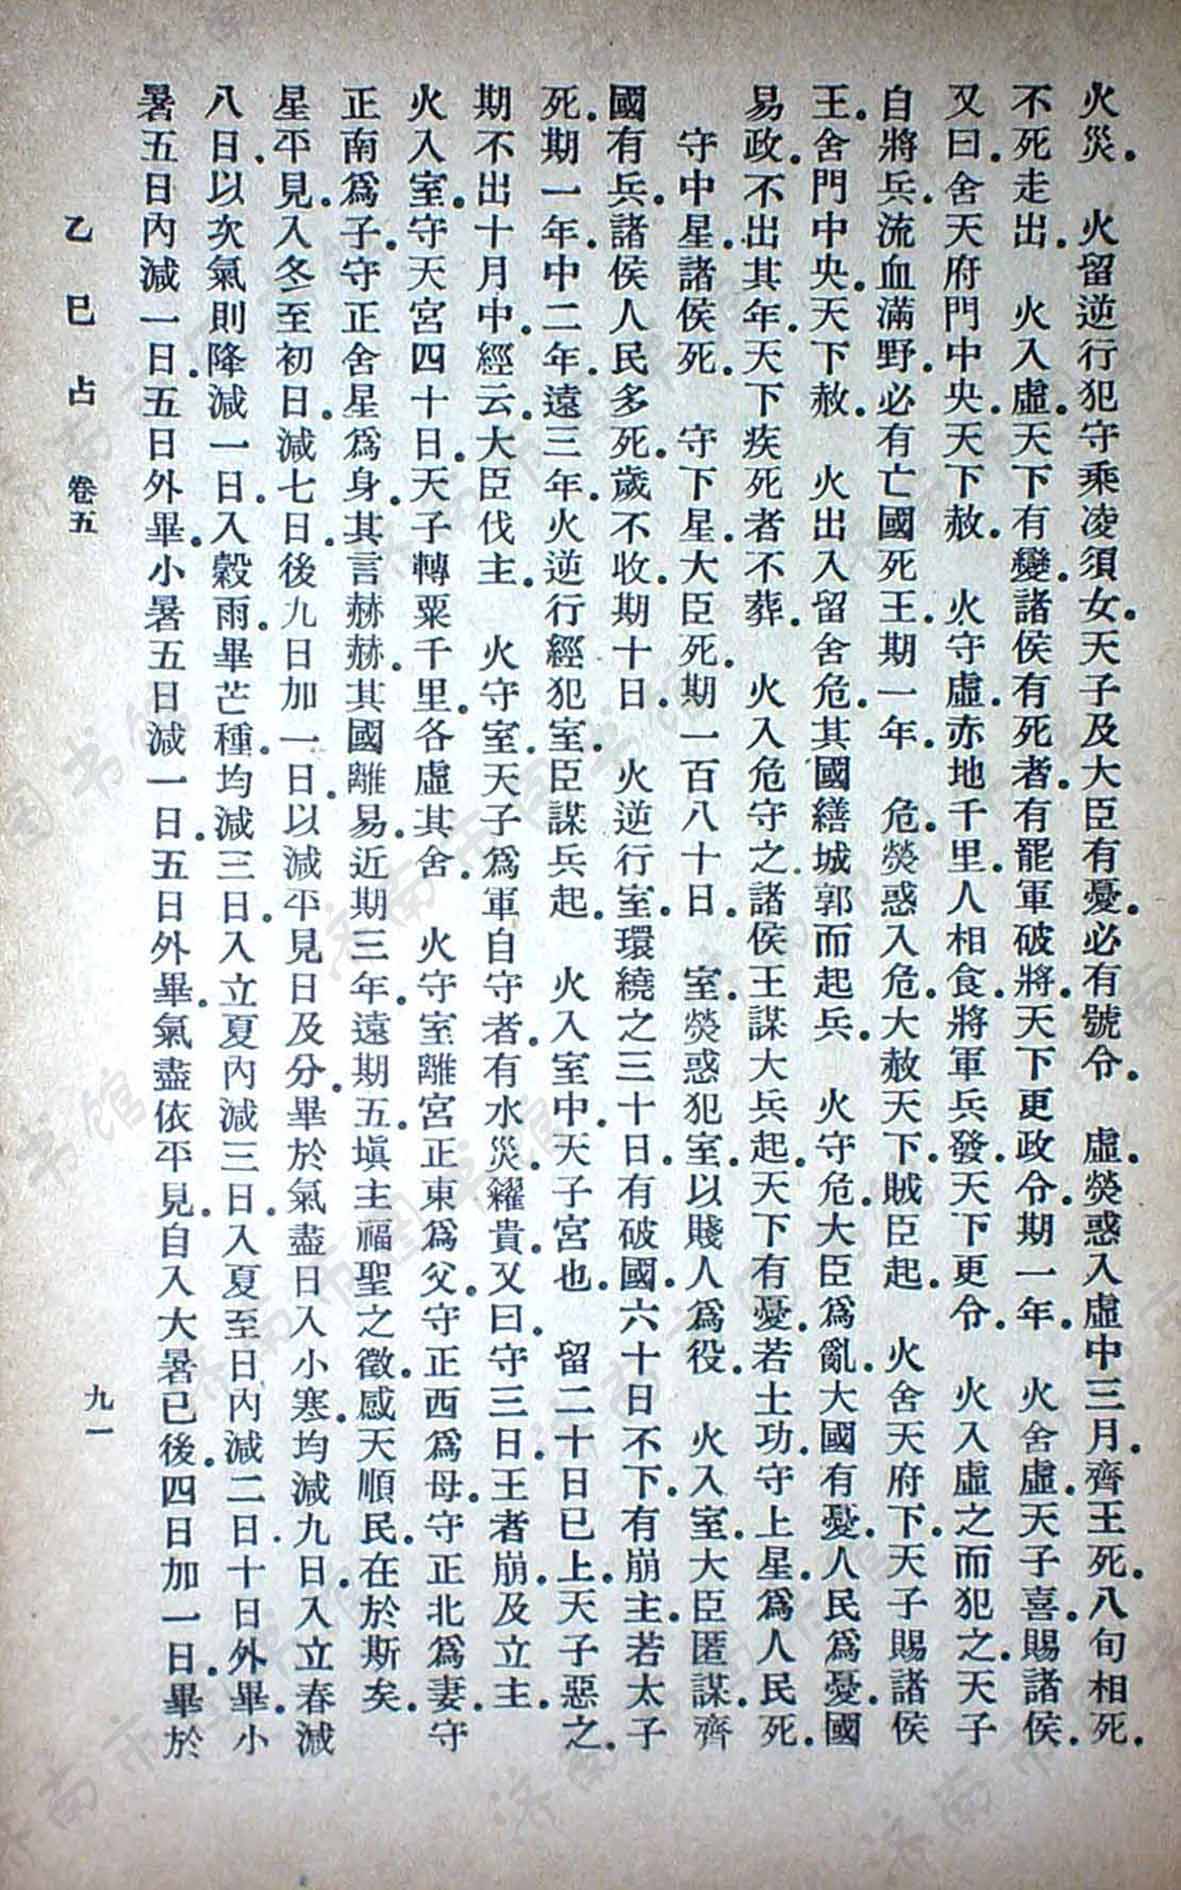 火災。　火留逆行犯守乘凌須女。天子及大臣有憂。必有號令。　虛。熒惑入虛中三月。齊王死。八旬相死。
不死走出。　火入虛。天下有變。諸侯有死者。有罷軍破將。天下更政令。期一年。　火舍虛。天子喜。賜諸侯。
又曰。舍天府門中央。天下赦。　火守虛。赤地千里。人相食。將軍兵發。天下更令。　火入虛之而犯之。天子
自將兵。流血滿野。必有亡國死王。期一年。　危。熒惑入危。大赦天下。賊臣起。　火舍天府下。天子賜諸侯
王。舍門中央。天下赦。　火出入留舍危。其國繕城郭而起兵。　火守危。大臣爲亂。大國有憂。人民爲憂。國
易政。不出其年。天下疾死者不葬。　火入危守之。諸侯王謀大兵起。天下有憂。若土功。守上星。爲人民死。
守中星。諸侯死。　守下星。大臣死。期一百八十日。　室。熒惑犯室。以賤人爲役。　火入室。大臣匿謀。齊
國有兵。諸侯人民多死。歲不收。期十日。　火逆行室。環繞之三十日。有破國。六十日不下。有崩主。若太子
死。期一年。中二年。遠三年。火逆行經犯室。臣謀兵起。　火入室中。天子宮也。　留二十日已上。天子惡之。
期不出十月中。經云。大臣伐主。　火守室。天子爲軍自守者。有水災。糴貴。又曰。守三日。王者崩。及立主。
火入室。守天宮四十日。天子轉粟千里。各虛其舍。　火守室離宮正東爲父。守正西爲母。守正北爲妻。守
正南爲子。守正舍星爲身。其言赫赫。其國離易。近期三年。遠期五。塡主福聖之徵。感天順民。在於斯矣。
星平見。入冬至初日。減七日。後九日加一日。以減平見日及分。畢於氣盡日入小寒。均減九日。入立春。減
八日。以次氣則降減一日。入穀雨。畢芒種。均減三日。入立夏內減三日。入夏至日內減二日。十日外畢。小
暑五日內減一日。五日外畢。小暑五日減一日。五日外畢。氣盡依平見。自入大暑已後。四日加一日。畢於
乙巳占　卷五　　九一